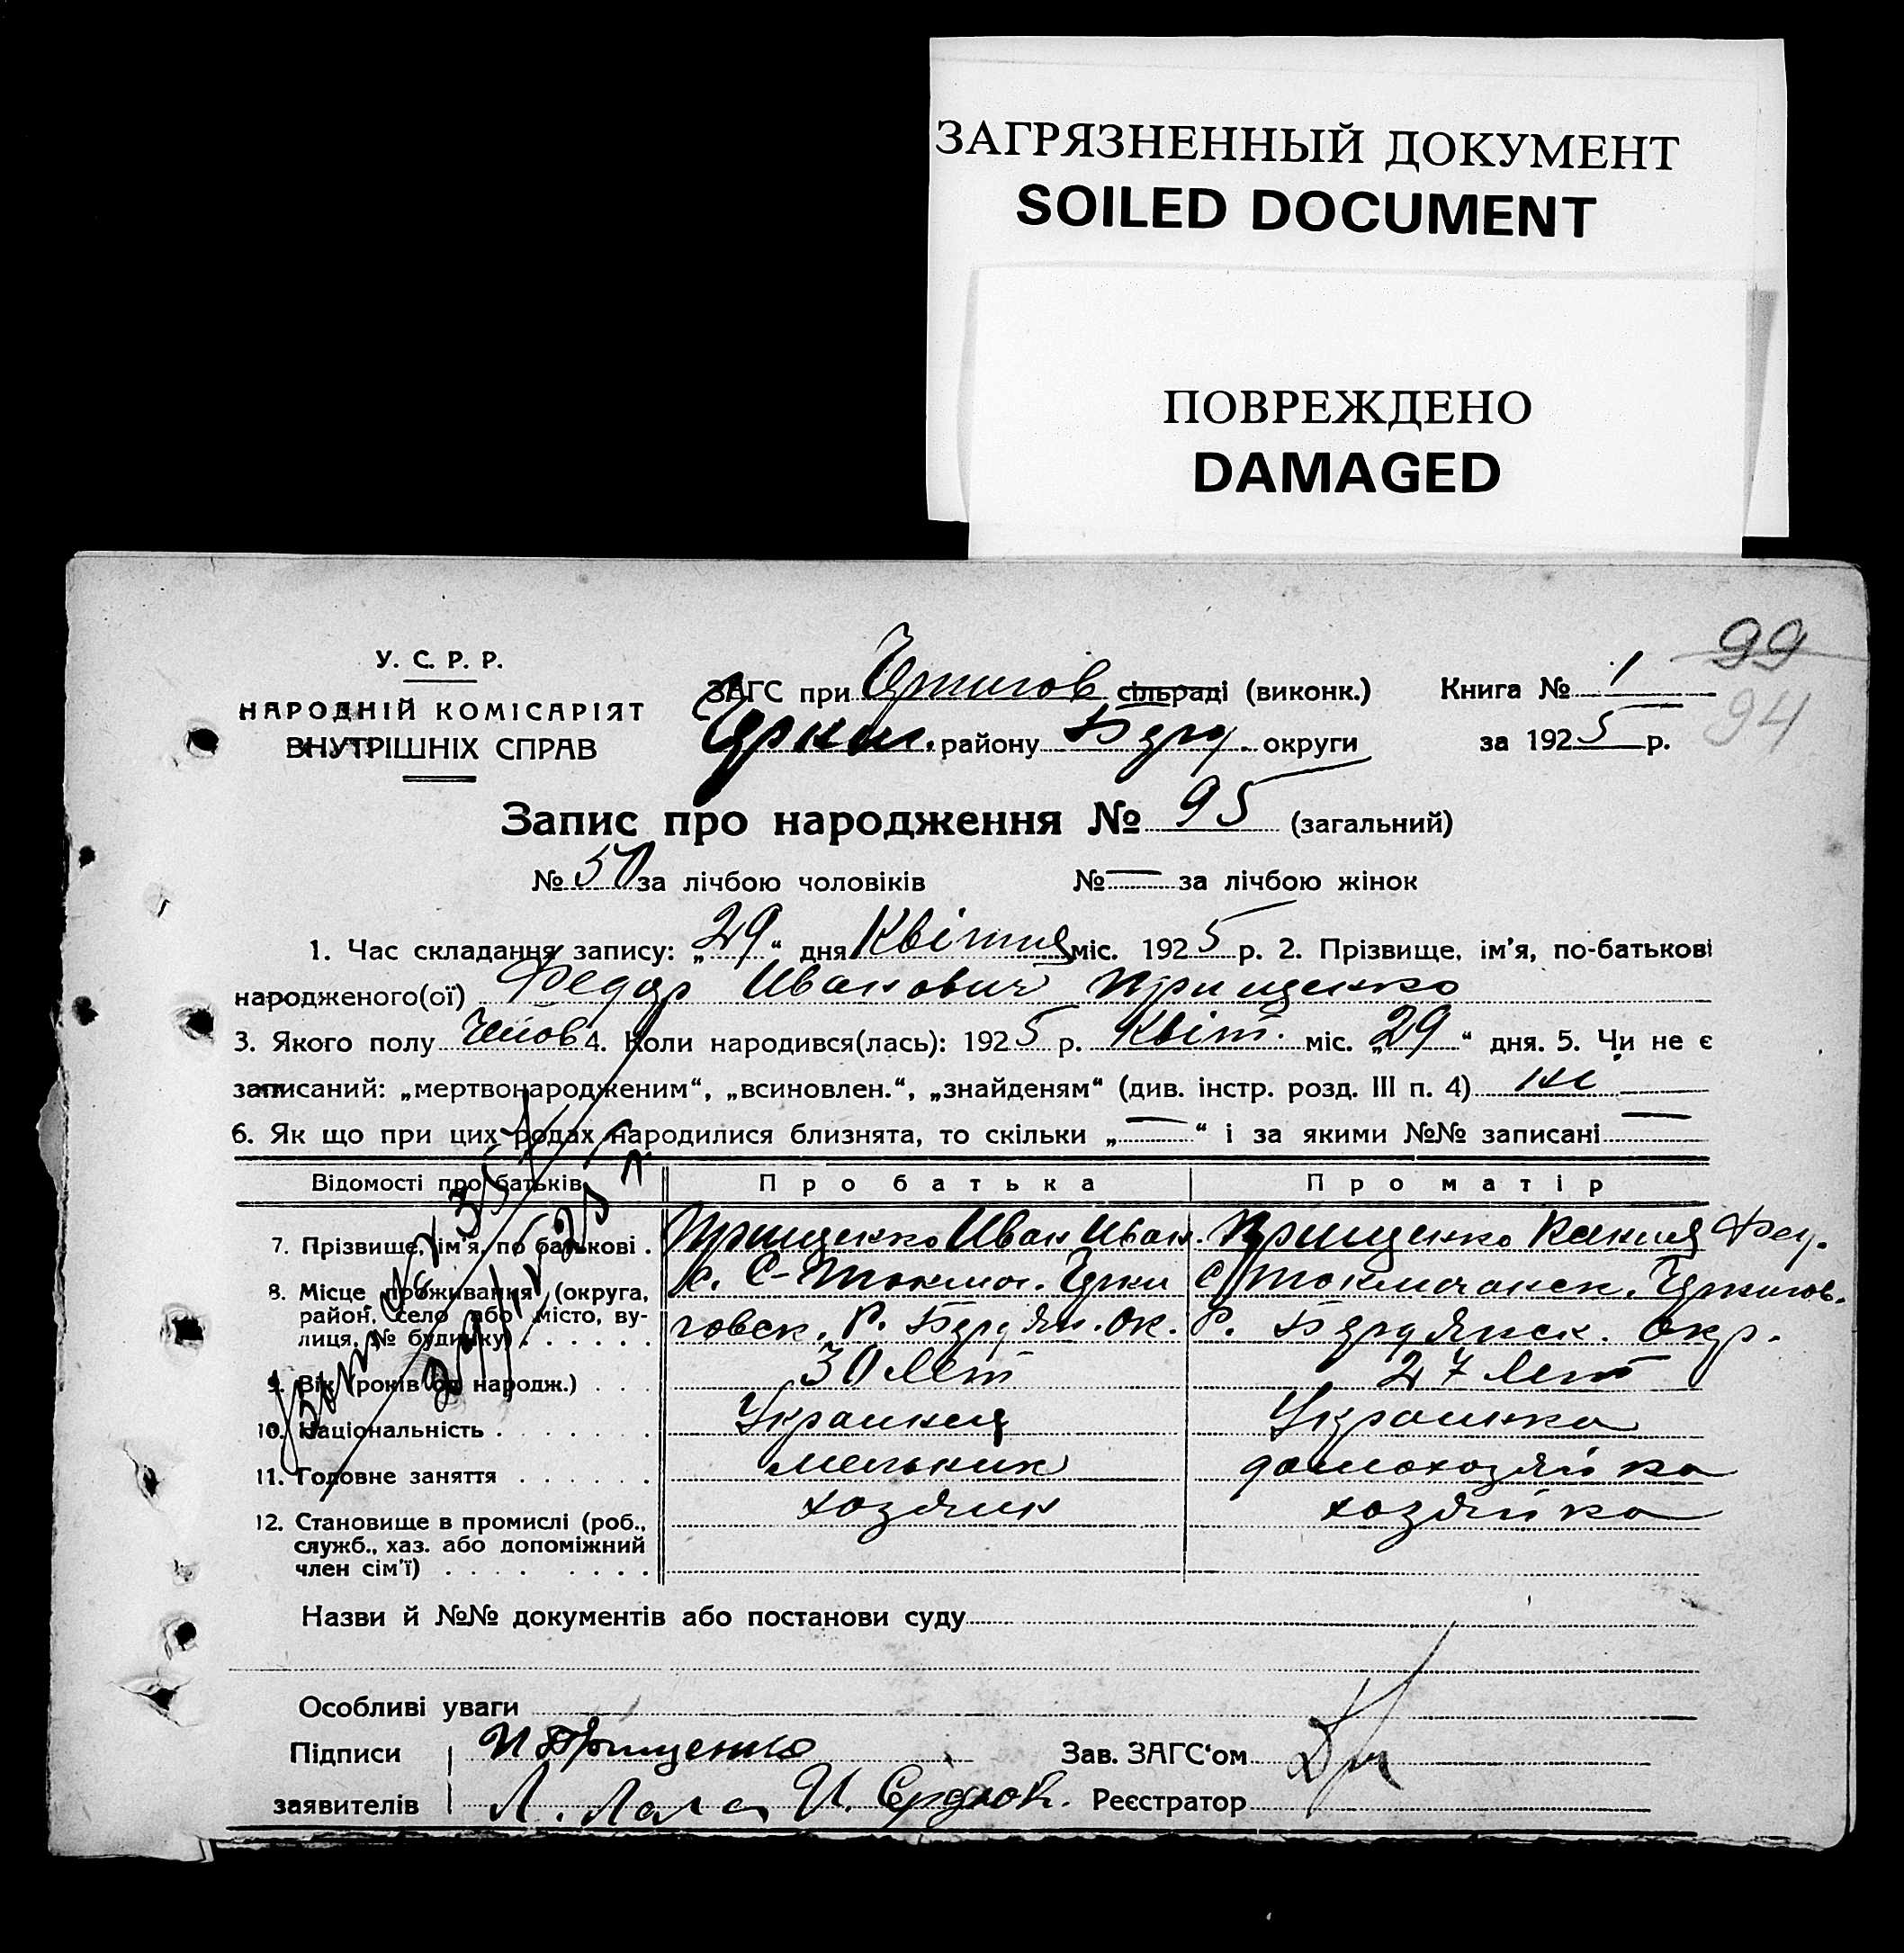 ЗАГРЯЗНЕННЫЙ ДОКУМЕНТ
SOILED DOCUMENT
ПОВРЕЖДЕНО
DAMAGED
99
94
У. С. Р. Р.
НАРОДНІЙ КОМІСАРІЯТ
ВНУТРІШНІХ СПРАВ
ЗАГС при сільраді (виконк.) Книга № 1
району Берд. округи за 1925 р.
Запис про народження № 95 (загальний)
№ 50 за лічбою чоловіків № — за лічбою жінок
1. Час складання запису: „29“ дня Квітня міс. 1925 р. 2. Прізвище, ім'я, по-батькові
народженого(ої) Федор Иванович Прищенко
3. Якого полу Чолов 4. Коли народився(лась): 1925 р. Квіт. міс. „29“ дня. 5. Чи не є
записаний: „мертвонародженим“, „всиновлен.“, „знайденям“ (див. інстр. розд. III п. 4) ні
6. Як що при цих родах народилися близнята, то скільки „—“ і за якими №№ записані —
Відомості про батьків Про батька Про матір
7. Прізвище, ім'я, по батькові . Прищенко Иван Иван. Прищенко Ксения Фед.
8. Місце проживання (округа, район, село або місто, вулиця, № будинку) с. С-Токмач. Черни
говск. Р. Бердян. Ок. С Токмачанск. Чернигов.
Р. Бердянск. Окр.
9. Вік (років од народж.) . . . 30 лет 27 лет
10. Національність . . . . . . . Украинец Украинка
11. Головне заняття . . . . . . мельник домохозяйка
12. Становище в промислі (роб., хозяин хозяйка
служб., хаз. або допоміжний
член сім'ї) . . . . . . . .
Назви й №№ документів або постанови суду
Особливі уваги
Підписи И Прищенко Зав. ЗАГС'ом
заявителів Реєстратор